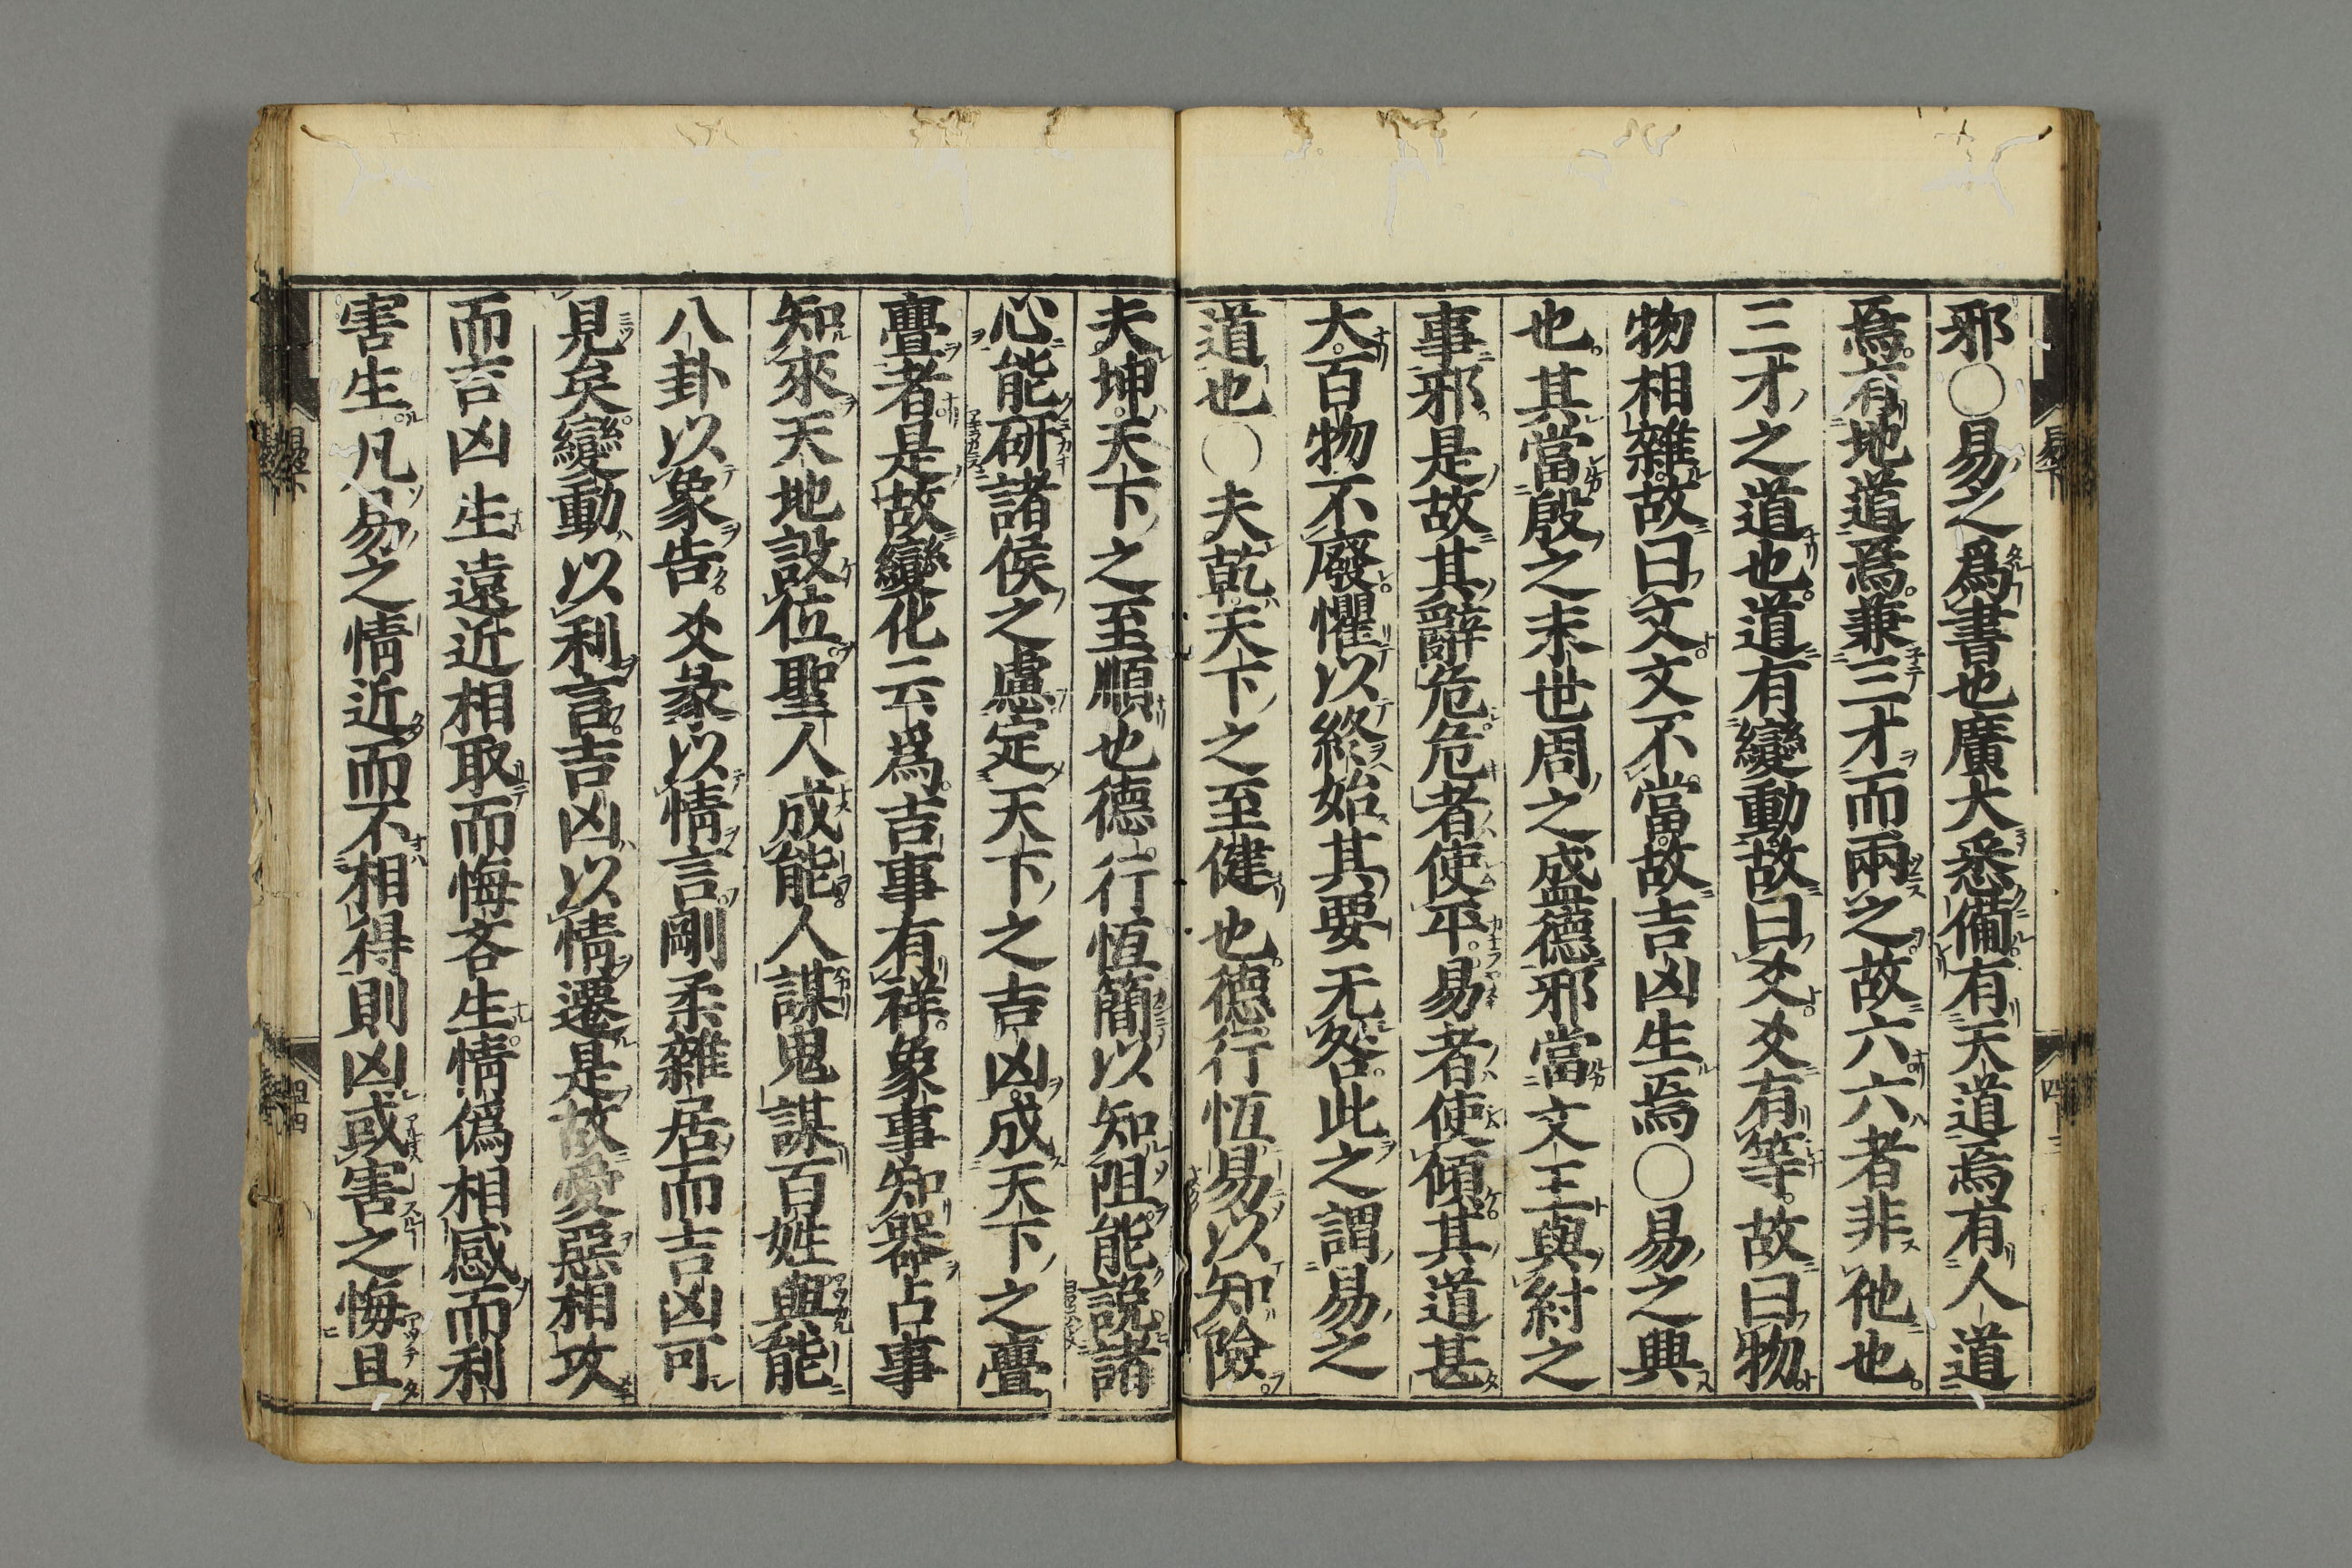 邪○易之爲書也廣大悉備有天道焉有人道
焉有地道焉兼三才而兩之故六六者非他也
三才之道也道有變動故曰爻爻有等故曰物
物相雜故曰文文不當故吉凶生焉○易之興
也其當殷之末世周之盛德邪當文王與紂之
事邪是故其辭危危者使平易者使傾其道甚
大百物不廢懼以終始其要无咎此之謂易之
道也○夫乾天下之至健也德行恆易以知險
夫坤天下之至順也德行恆簡以知阻能說諸
心能研諸侯之慮定天下之吉凶成天下之亹
亹者是故變化云爲吉事有祥象事知器占事
知來天地設位聖人成能人謀鬼謀百姓與能
八卦以象告爻彖以情言剛柔雜居而吉凶可
見矣變動以利言吉凶以情遷是故愛惡相攻
而吉凶生遠近相取而悔吝生情僞相感而利
害生凡易之情近而不相得則凶或害之悔且